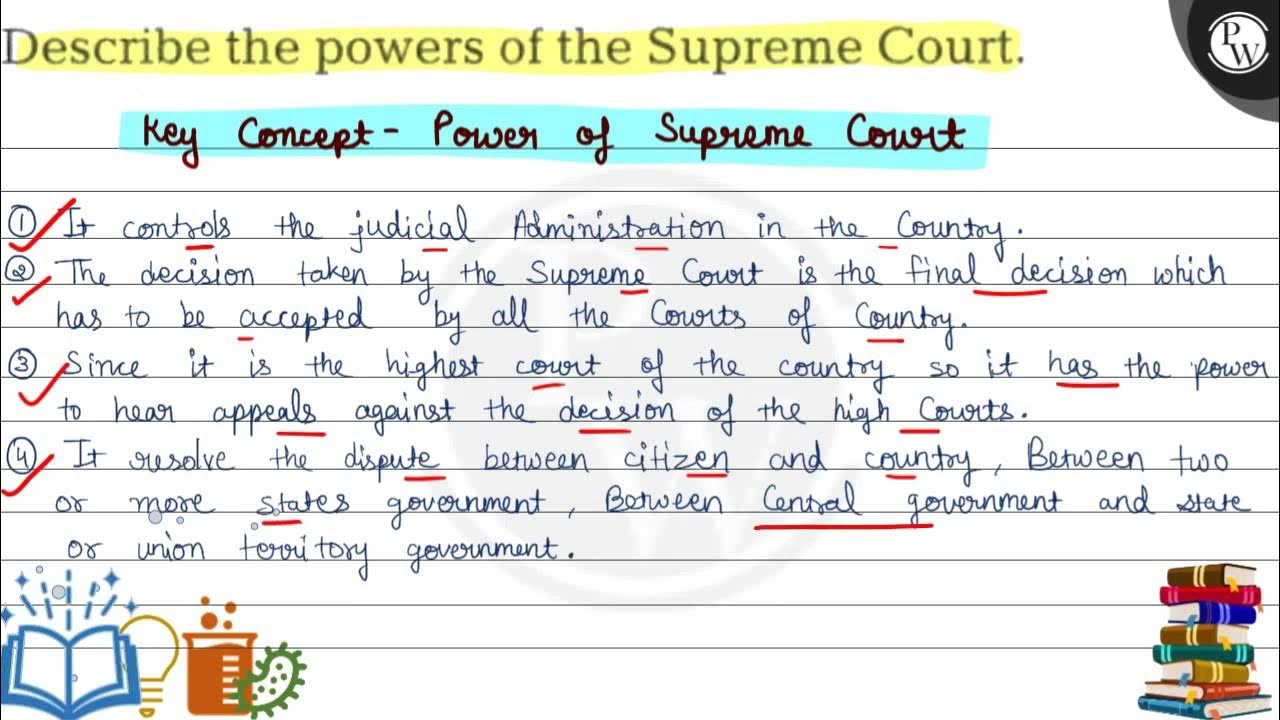 Describe the powers of the Supreme Court.
PW
Key Concept - Power of Supreme Court
① It controls the judicial Administration in the Country.
② The decision taken by the Supreme Court is the final decision which
has to be accepted by all the Courts of Country.
③ Since it is the highest court of the country so it has the power
to hear appeals against the decision of the high Courts.
④ It resolve the dispute between citizen and country, Between two
or more states government, Between Central government and state
or union territory government.